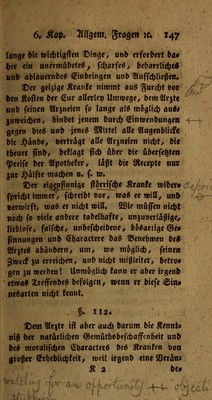 6. Kap. Allgem. Fragen ꝛc. 147
lange die wichtigsten Dinge, und erfordert das
her ein unermüdetes, scharfes, beharrliches
und ablaurendes Eindringen und Aufschließen.
Der geizige Kranke nimmt aus Furcht vor
den Kosten der Cur allerley Umwege, dem Arzte
und seinen Arzneien so lange als möglich aus-
zuweichen, bindet jenem durch Einwendungen
gegen dies und jenes Mittel alle Augenblicke
die Hände, verträgt alle Arzneien nicht, die
theuer sind, beklagt sich über die übersetzten
Preise der Apotheker, läßt die Recepte nur
zur Hälfte machen u. s. w.
Der eigensinnige störrische Kranke wider-
spricht immer, schreibt vor, was er will, und
verwirft, was er nicht will. Wie müssen nicht
noch so viele andere tadelhafte, unzuverläßige,
lieblose, falsche, unbescheidene, bösartige Ge-
sinnungen und Charactere das Benehmen des
Arztes abändern, um, wo möglich, seinen
Zweck zu erreichen, und nicht misleitet, betro-
gen zu werden! Unmöglich kann er aber irgend
etwas Treffendes befolgen, wenn er diese Sin-
nesarten nicht kennt.
§. 112.
Dem Arzte ist aber auch darum die Kennt-
niß der natürlichen Gemüthsbeschaffenheit und
des moralischen Characters des Kranken von
großer Erheblichkeit, weil irgend eine Verän-
K 2 de-
for an opportunity